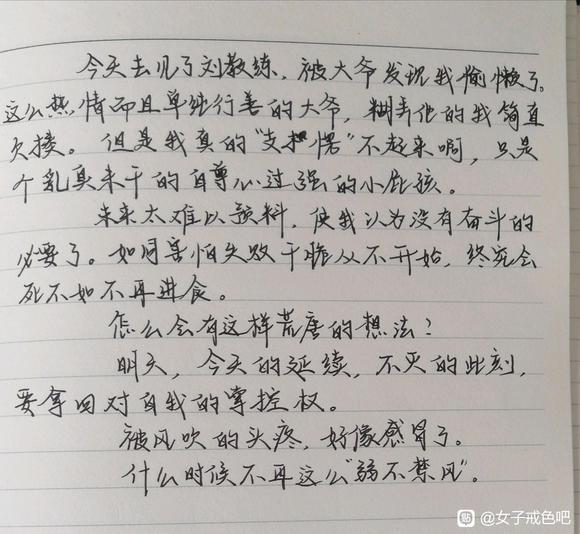 今天去见了刘教练，被大爷发现我偷懒了。
这么热情而且单纯行善的大爷，糊弄他的我简直
欠揍。但是我真的“支棱”不起来啊，只是
个乳臭未干的自尊心过强的小屁孩。
未来太难以预料，使我认为没有奋斗的
必要了。如同害怕失败干脆从不开始，终究会
死不如不再进食。
怎么会有这样荒唐的想法？
明天，今天的延续，不灭的此刻，
要拿回对自我的掌控权。
被风吹的头疼，好像感冒了。
什么时候不再这么“弱不禁风”。
贴 @女子戒色吧